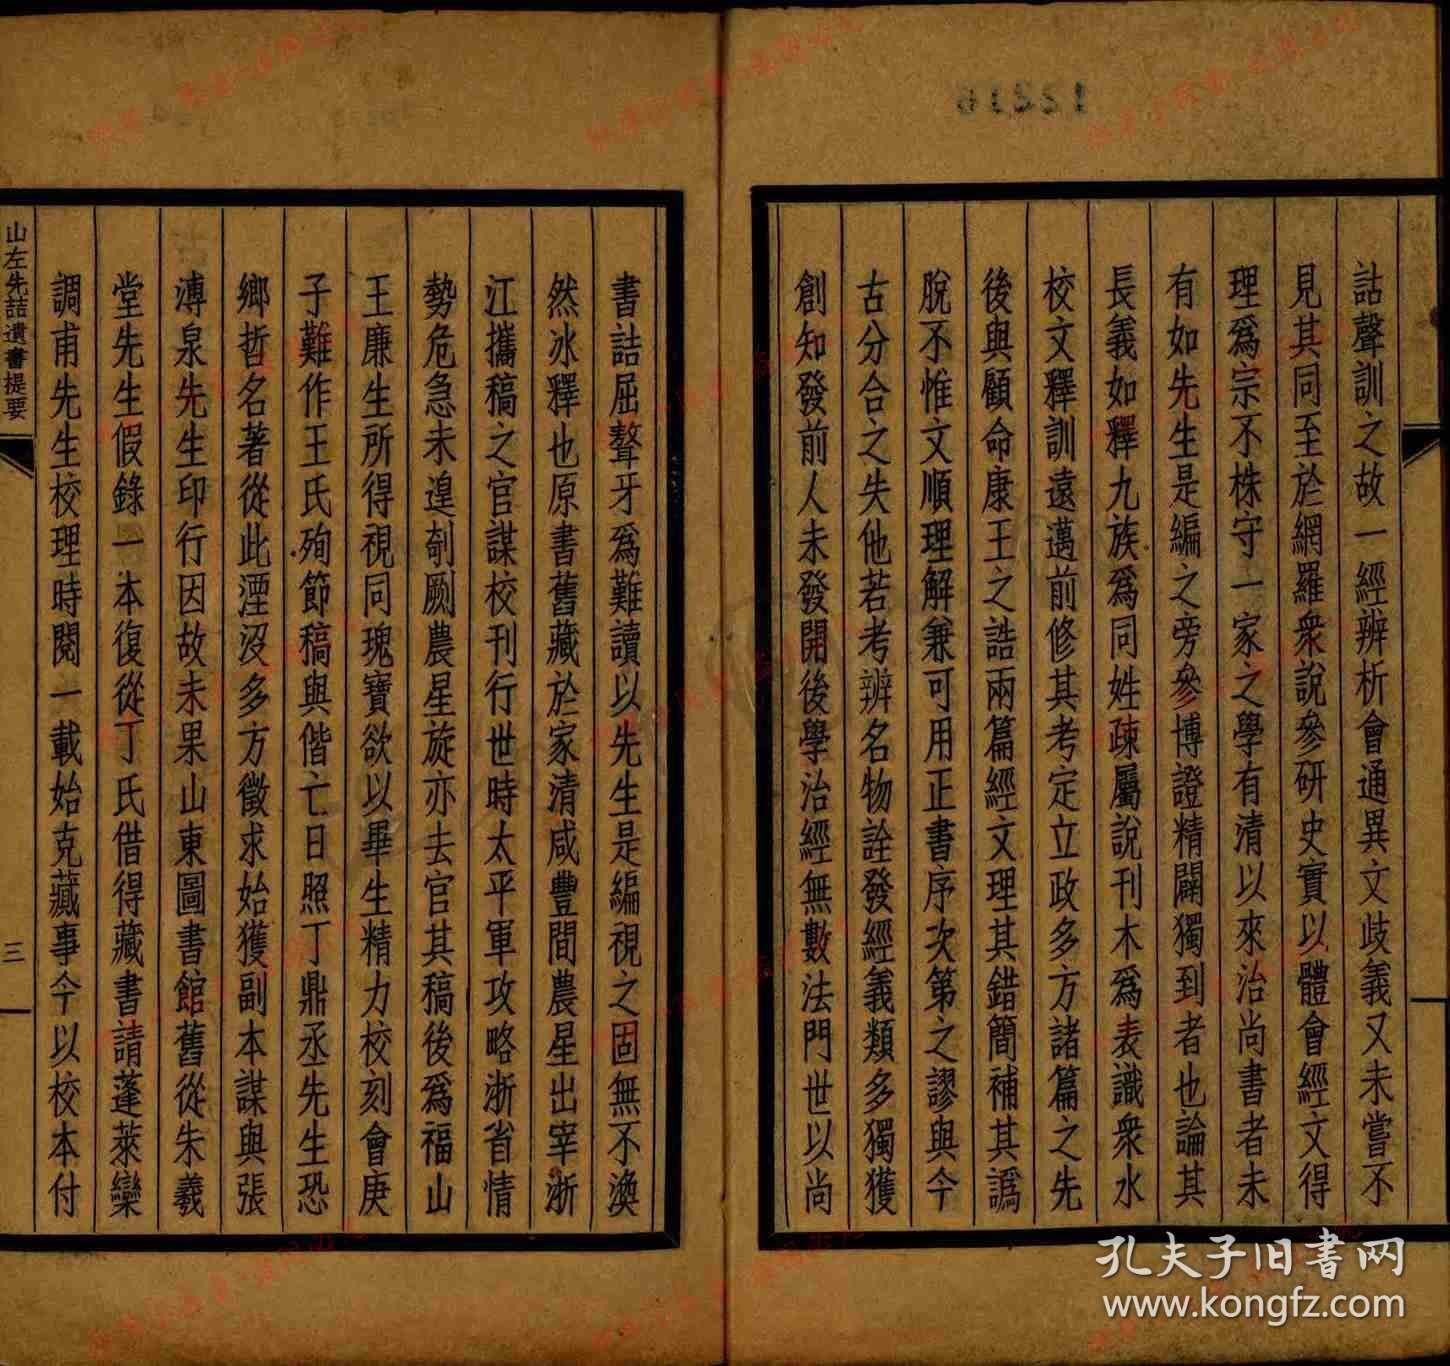 詁聲訓之故一經辨析會通異文歧義又未嘗不
見其同至於網羅衆說參研史實以體會經文得
理爲宗不株守一家之學有清以來治尚書者未
有如先生是編之旁參博證精闢獨到者也論其
長義如釋九族爲同姓疎屬說刊木爲表識衆水
校文釋訓遠邁前修其考定立政多方諸篇之先
後與顧命康王之誥兩篇經文理其錯簡補其譌
脫不惟文順理解兼可用正書序次第之謬與今
古分合之失他若考辨名物詮發經義類多獨獲
創知發前人未發開後學治經無數法門世以尚
書詰屈聱牙爲難讀以先生是編視之固無不渙
然冰釋也原書舊藏於家清咸豐間農星出宰浙
江攜稿之官謀校刊行世時太平軍攻略浙省情
勢危急未遑剞劂農星旋亦去官其稿後爲福山
王廉生所得視同瑰寶欲以畢生精力校刻會庚
子難作王氏殉節稿與偕亡日照丁鼎丞先生恐
鄉哲名著從此湮沒多方徵求始獲副本謀與張
溥泉先生印行因故未果山東圖書館舊從朱羲
堂先生假錄一本復從丁氏借得藏書請蓬萊欒
調甫先生校理時閱一載始克蕆事今以校本付
山左先喆遺書提要
三
孔夫子旧书网
www.kongfz.com